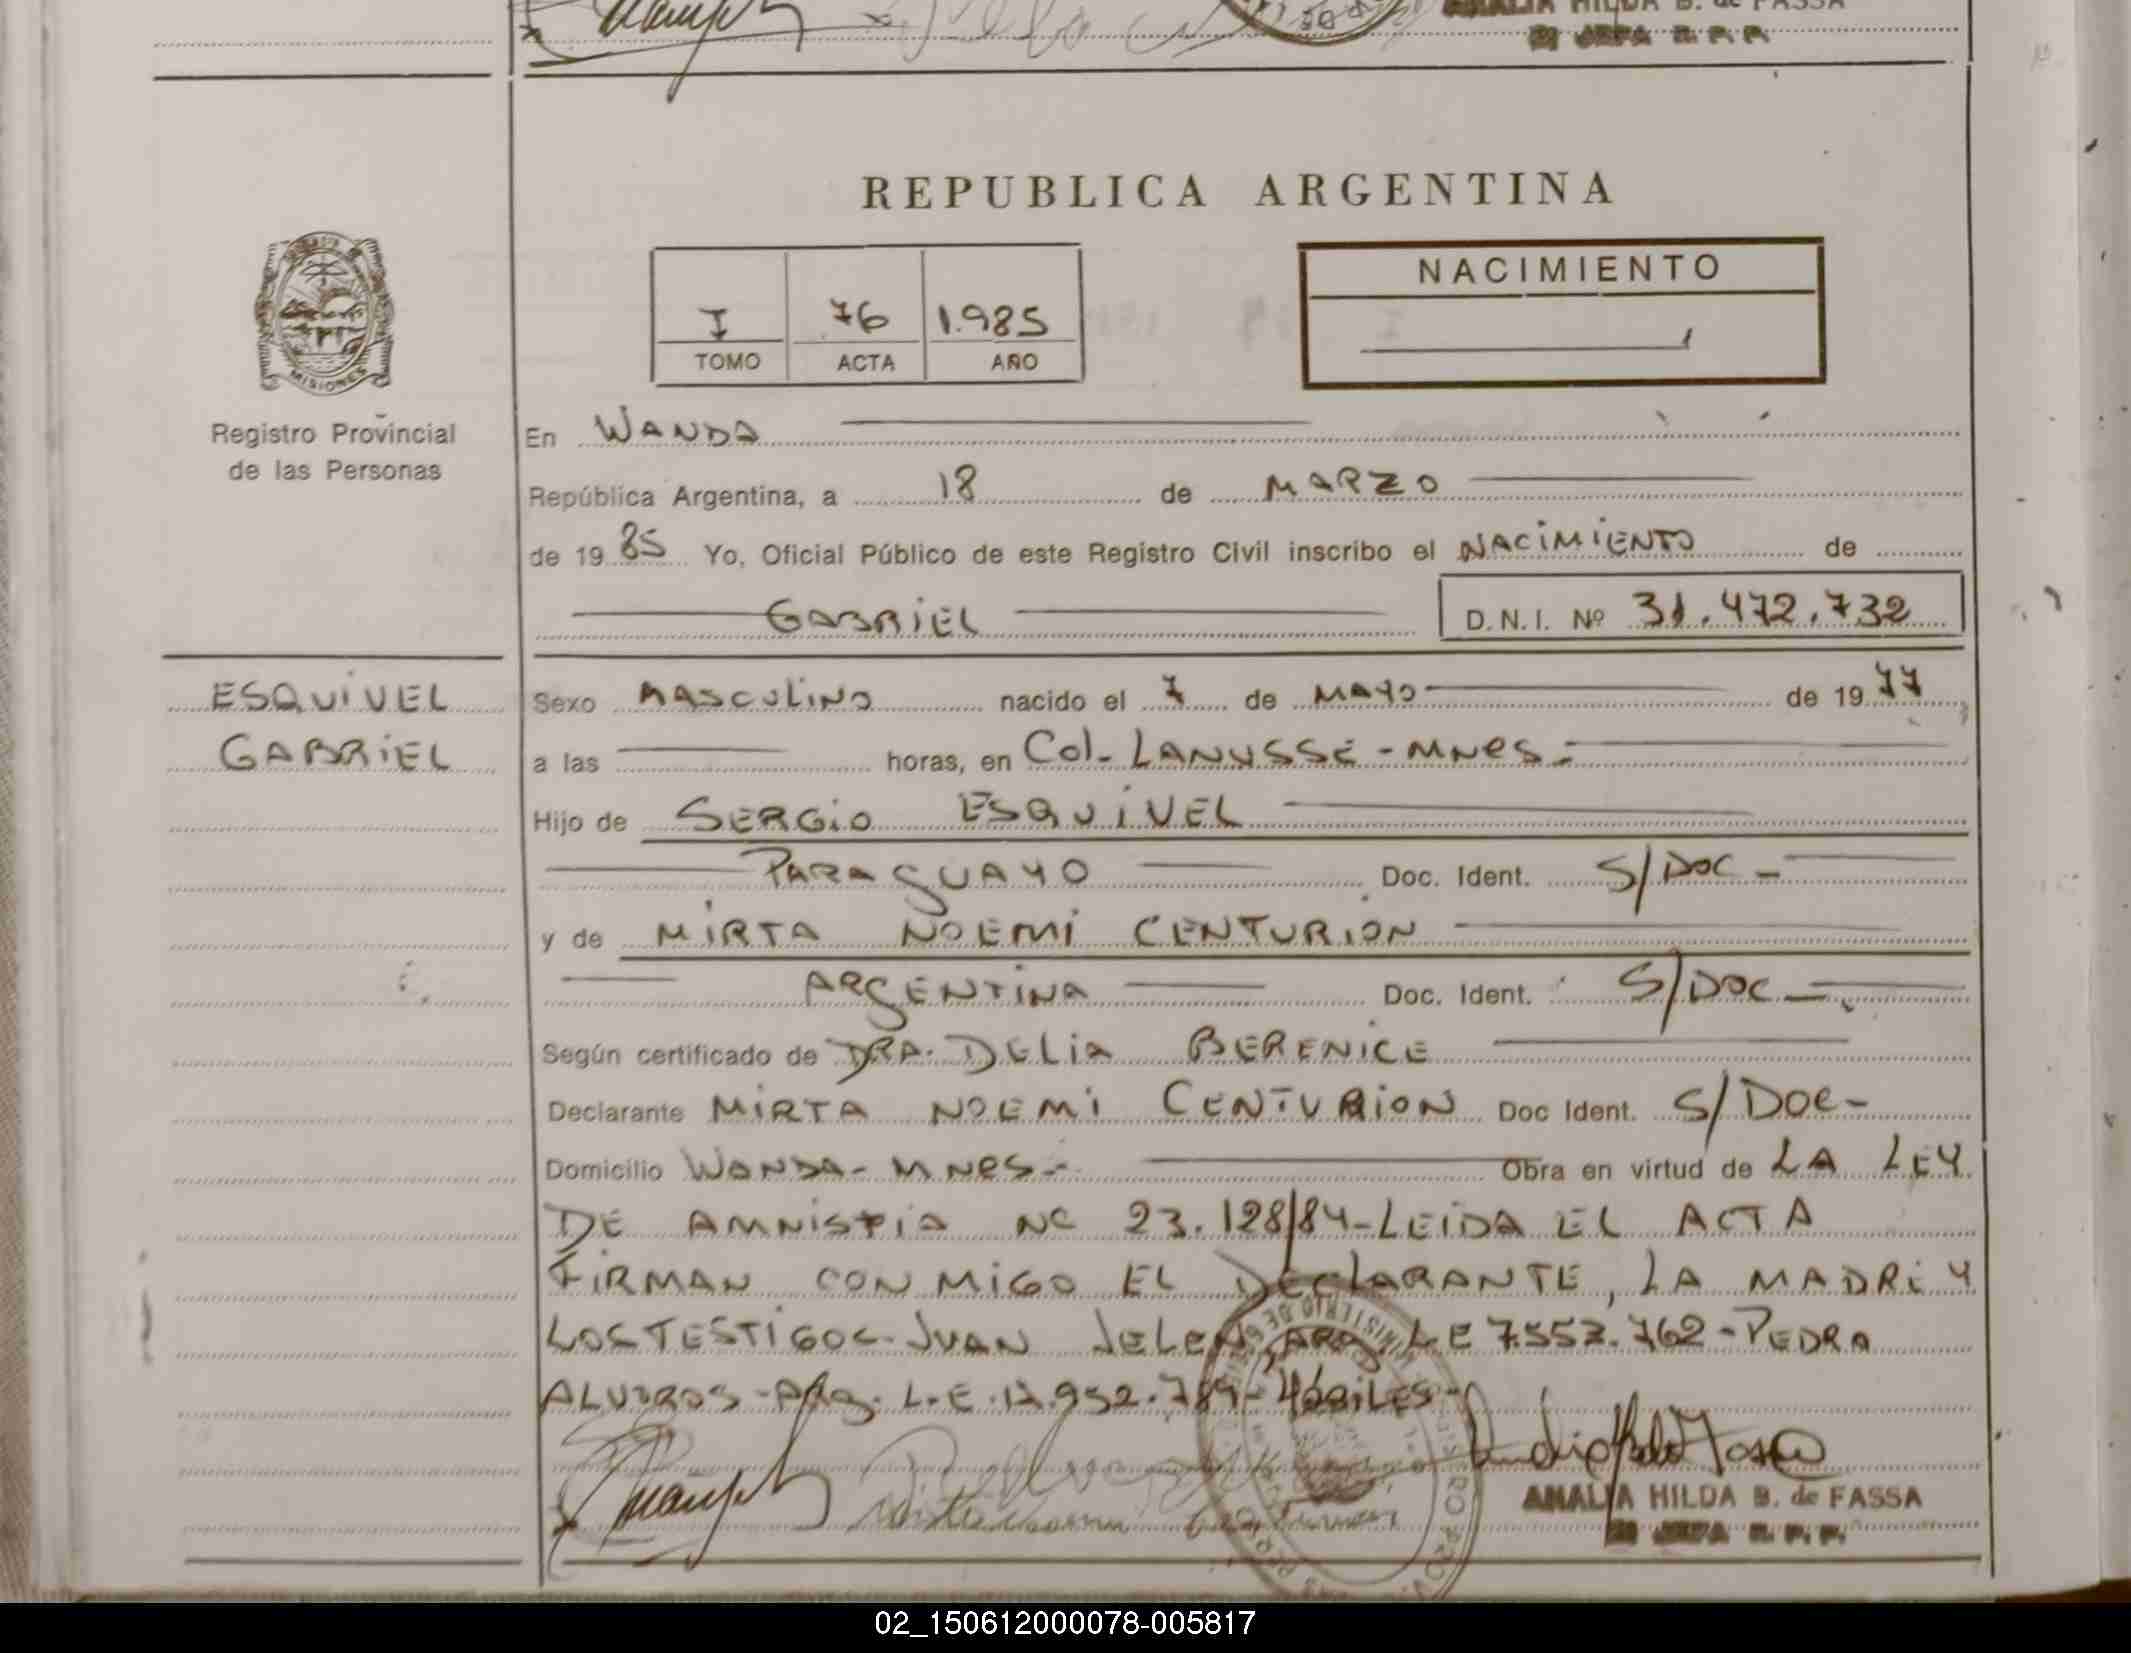 ANALIA HILDA B. de FASSA
JEFA R. P. P.
REPUBLICA ARGENTINA
I 76 1.985
TOMO ACTA AÑO
NACIMIENTO
MISIONES
Registro Provincial
de las Personas
En WANDA
República Argentina, a 18 de MARZO
de 19 85 Yo, Oficial Público de este Registro Civil inscribo el NACIMIENTO de
GABRIEL D.N.I. Nº 31.472.732
ESQUIVEL
GABRIEL
Sexo MASCULINO nacido el 7 de MAYO de 19 77
a las horas, en Col- LANUSSE - MNES.-
Hijo de SERGIO ESQUIVEL
PARAGUAYO Doc. Ident. S/DOC -
y de MIRTA NOEMI CENTURION
ARGENTINA Doc. Ident. S/DOC -
Según certificado de DRA. DELIA BERENICE
Declarante MIRTA NOEMI CENTURION Doc Ident. S/DOC-
Domicilio WANDA- MNES- Obra en virtud de LA LEY
DE AMNISTIA Nº 23.128/84-LEIDA EL ACTA
FIRMAN CON MIGO EL DECLARANTE, LA MADRE Y
LOS TESTIGOS- JUAN ARG L.E 7.557.762-PEDRA
ARG. L.E. HÁBILES-
ANALIA HILDA B. de FASSA
JEFA R. P. P.
02_150612000078-005817